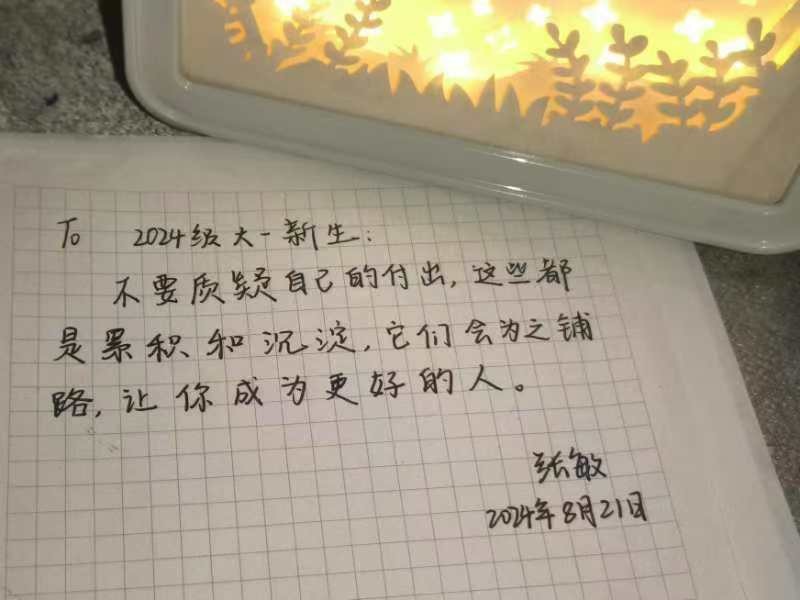 To 2024级大一新生:
不要质疑自己的付出,这些都
是累积和沉淀,它们会为之铺
路,让你成为更好的人。
张敏
2024年8月21日